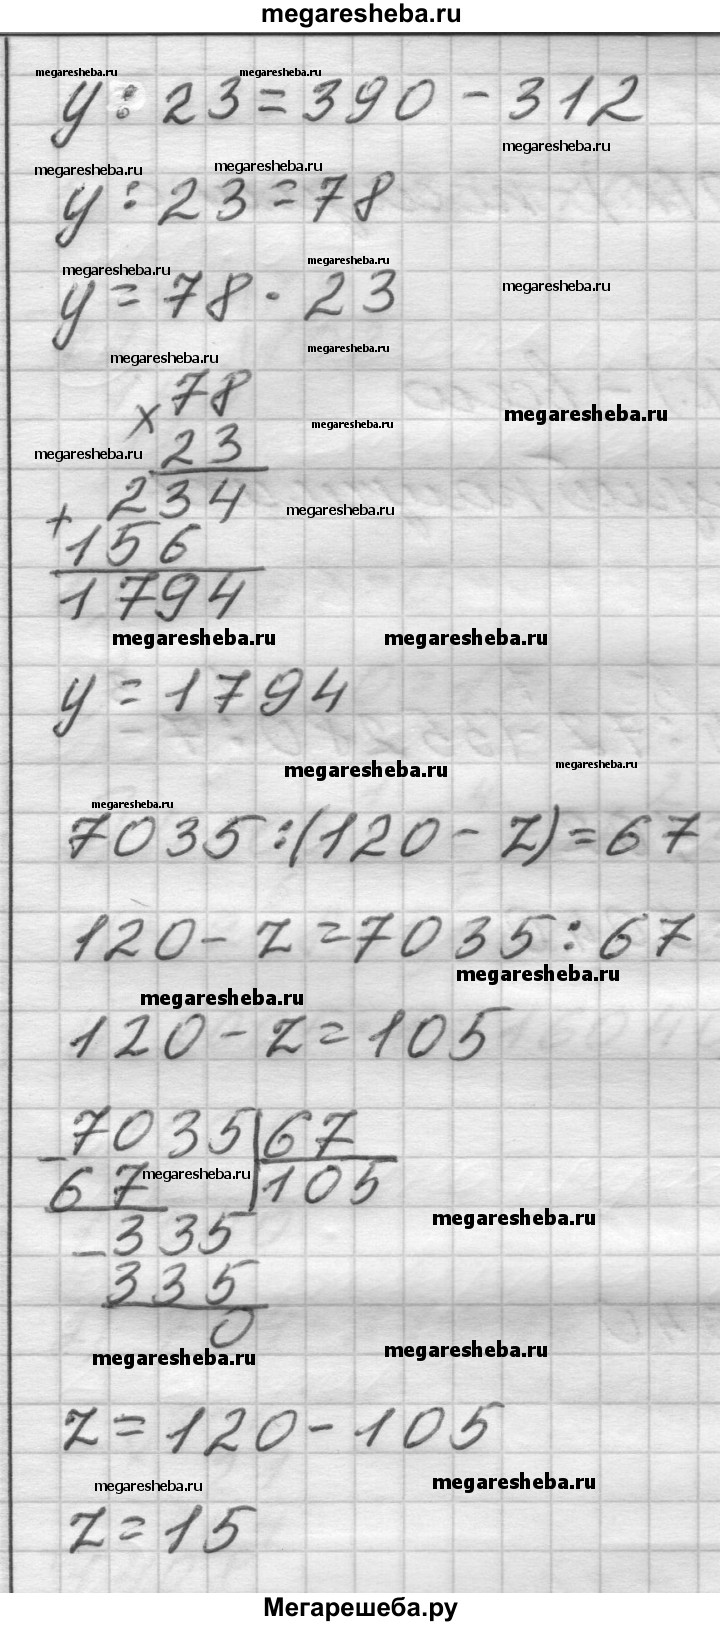 megaresheba.ru
megaresheba.ru megaresheba.ru
y : 23 = 390 - 312
megaresheba.ru
megaresheba.ru megaresheba.ru
y : 23 = 78
megaresheba.ru
megaresheba.ru
megaresheba.ru
y = 78 · 23
megaresheba.ru
megaresheba.ru
× 78
megaresheba.ru
megaresheba.ru
23
megaresheba.ru
234
megaresheba.ru
+ 156
1794
megaresheba.ru megaresheba.ru
y = 1794
megaresheba.ru
megaresheba.ru
megaresheba.ru
7035 : (120 - z) = 67
120 - z = 7035 : 67
megaresheba.ru
megaresheba.ru
120 - z = 105
- 7035 | 67
67 megaresheba.ru 105
megaresheba.ru
- 335
335
0
megaresheba.ru
megaresheba.ru
z = 120 - 105
megaresheba.ru
megaresheba.ru
z = 15
Мегарешеба.ру